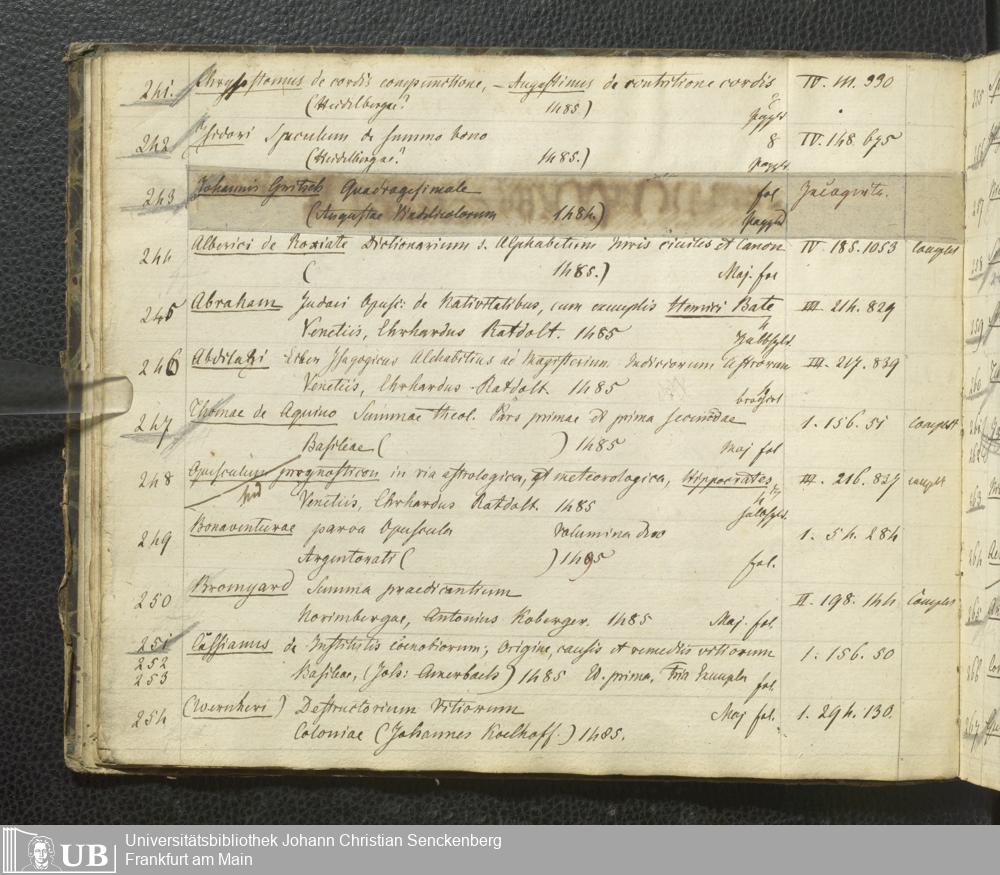 241. Chrysostomus de cordis compunctione, – Augustinus de contritione cordis IV. M. 990
(Heidelbergae? 1485.)
242 Isidori Speculum de summo bono 8 IV. 148. 675
(Heidelbergae? 1485.)
243 Johannis Gritsch Quadragesimale fol. Incognita.
(Augustae Vindelicorum 1484)
244 Alberici de Roxiate Dictionarium s. Alphabetum Juris civilis et Canon IV. 185. 1053 Complet
( 1485.) Maj. fol
245 Abraham Judaei Opusc: de Nativitatibus, cum exemplis Henrici Bate III. 214. 829
Venetiis, Ehrhardus Ratdolt. 1485 4 Halbfzbd.
246 Abdilazi Liber Isagogicus Alchabitius ad Magisterium Judiciorum Astrorum III. 217. 839
Venetiis, Ehrhardus Ratdolt. 1485 4 brochirt
247 Thomae de Aquino Summae theol. Pars primae et prima secundae 1. 156. 51 Complett
Basileae ( ) 1485 Maj fol
248 Opusculum prognosticon in via astrologica, et meteorologica, Hippocrates III. 216. 827 complt
Venetiis, Ehrhardus Ratdolt. 1485 4 Halbfzbd.
249 Bonaventurae parva Opuscula Volumina duo 1. 54. 284
Argentorati ( ) 1495 fol.
250 Bromyard Summa praedicantium II. 198. 144 Complet
Norimbergae, Antonius Koberger. 1485 Maj. fol.
251 Cassianus de Institutis coenobiorum; origine, causis et remediis vitiorum 1. 156. 50
252
253 Basileae, (Joh: Amerbach) 1485 Ed. prima. Tria Exempla fol.
254 (Wernheri) Destructorium Vitiorum Maj fol. 1. 294. 130.
Coloniae (Johannes Koelhoff.) 1485.
UB Universitätsbibliothek Johann Christian Senckenberg
Frankfurt am Main